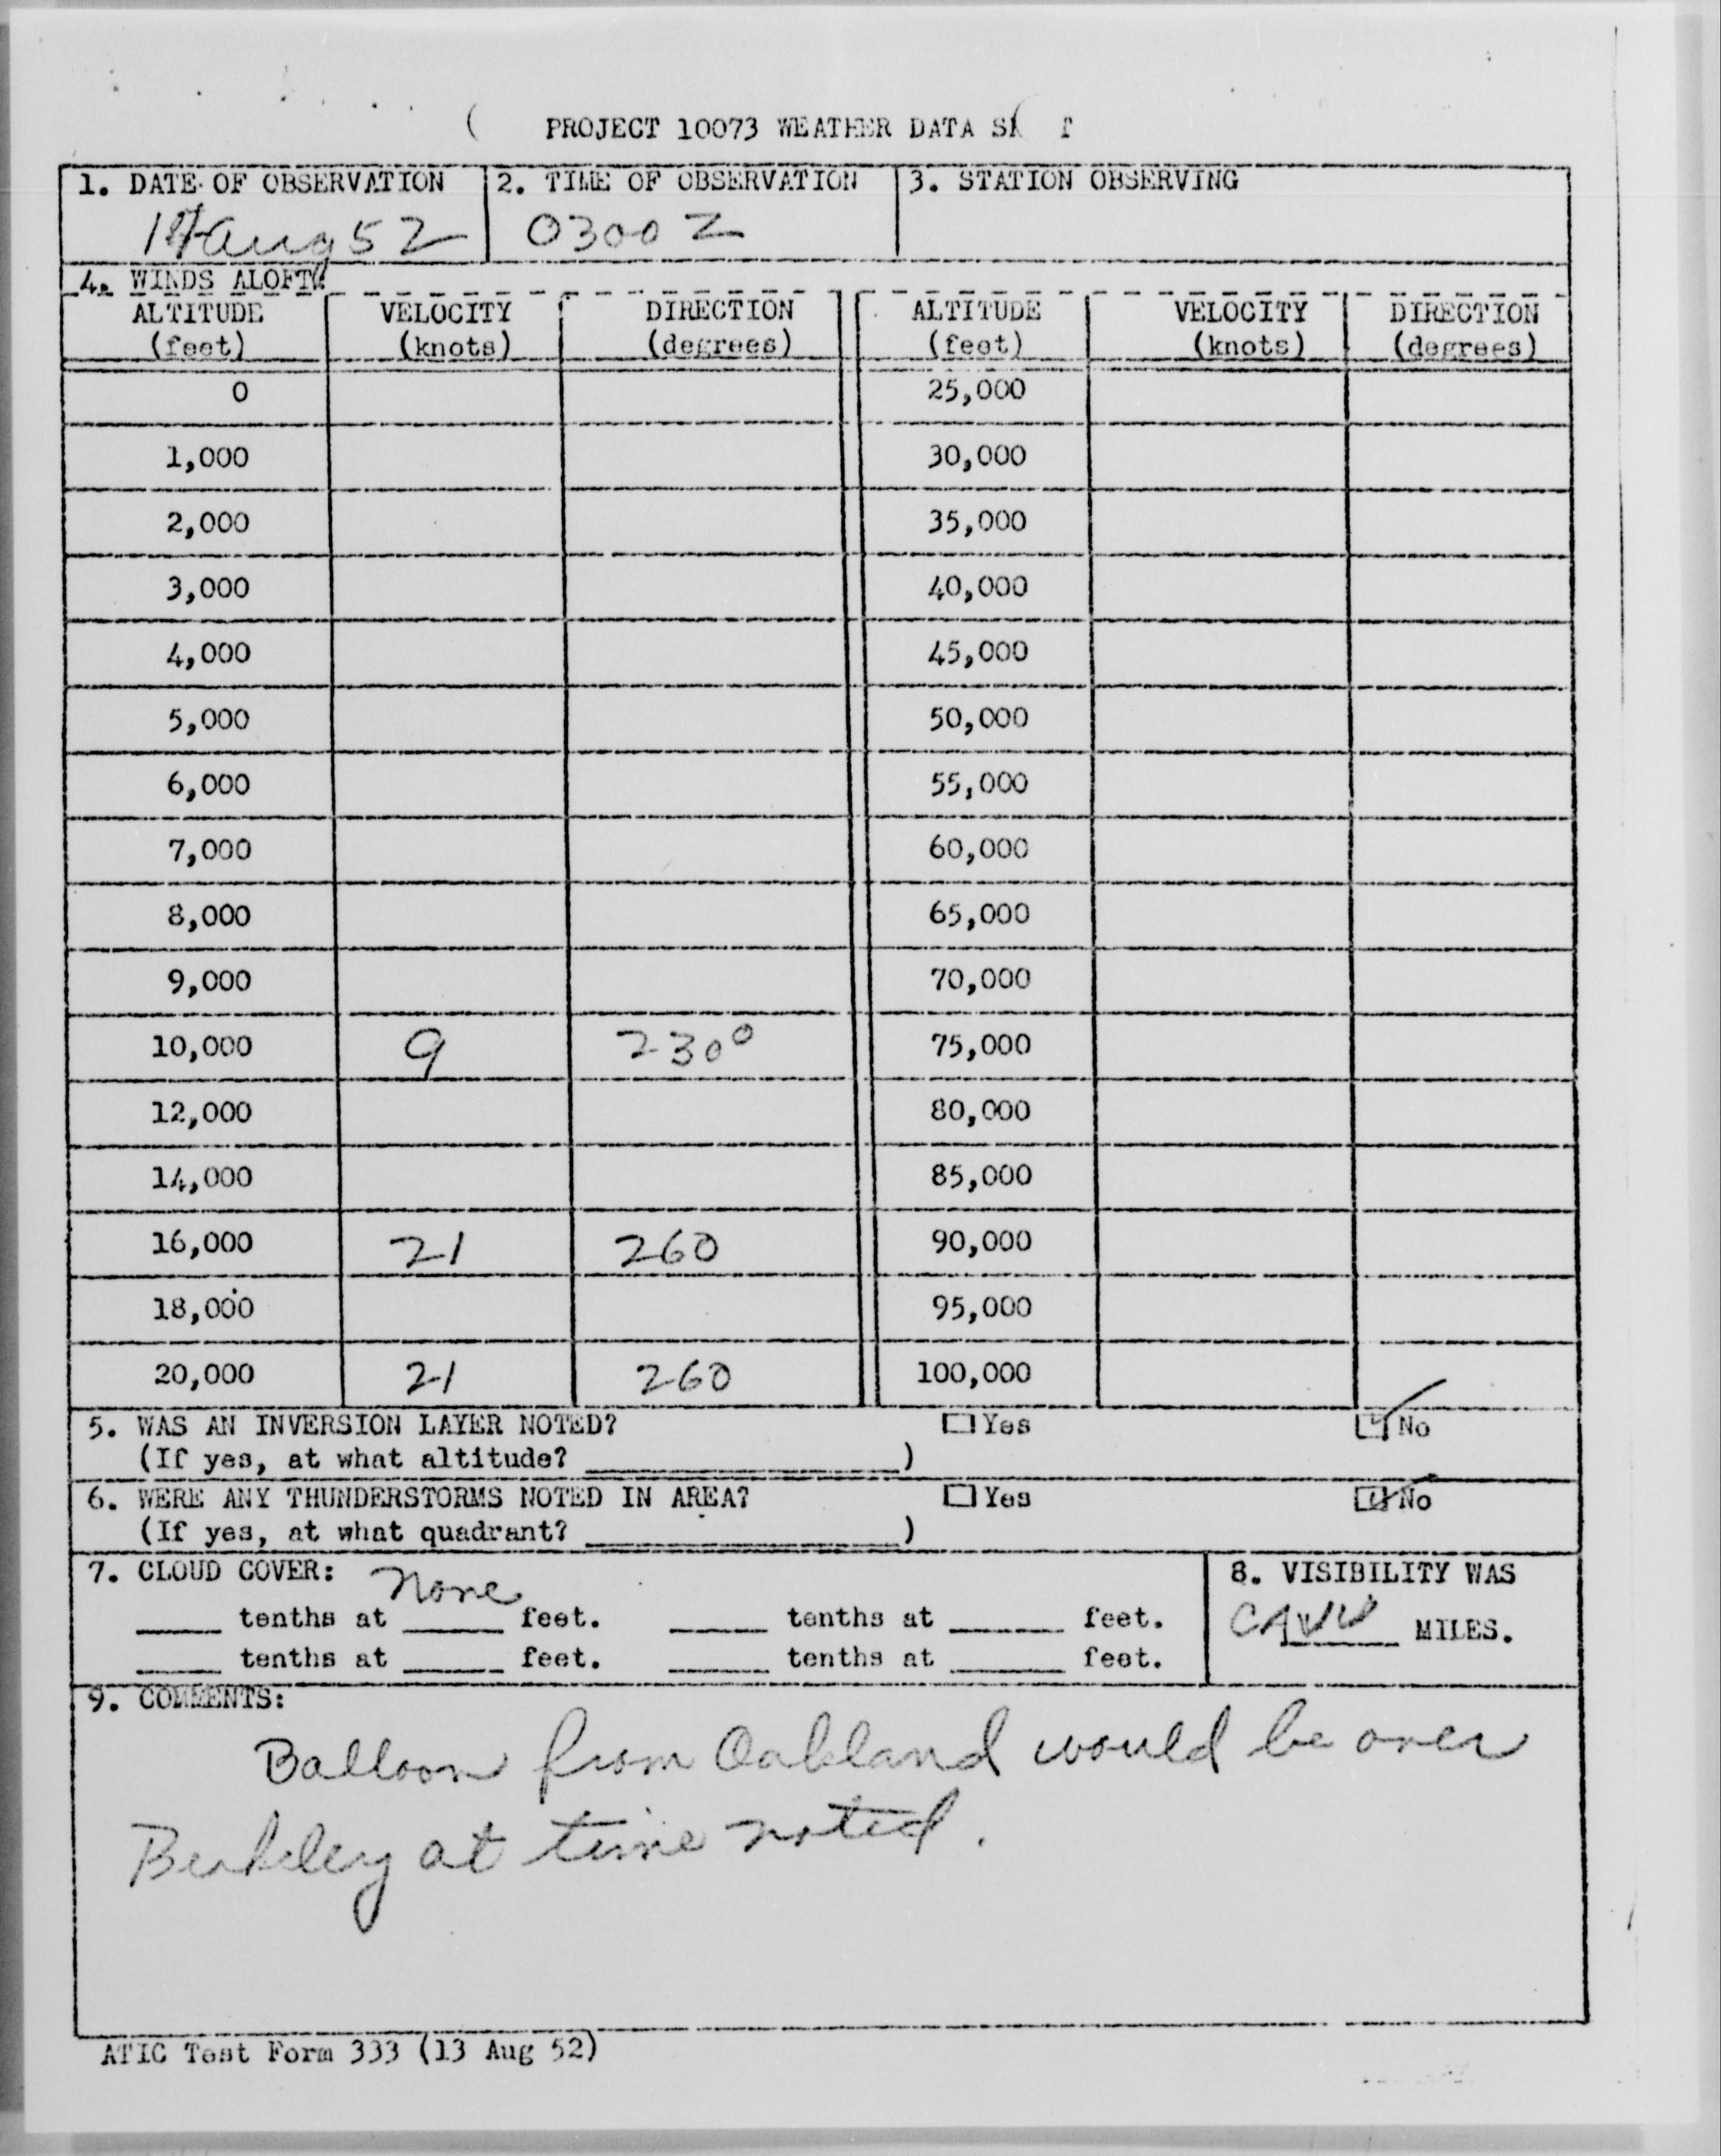 PROJECT 10073 WEATHER DATA
1. DATE OF OBSERVATION 2. TIME OF OBSERVATION 3. STATION OBSERVING
Aug 52 0300 Z
4. WINDS ALOFT
ALTITUDE VELOCITY DIRECTION ALTITUDE VELOCITY DIRECTION
(feet) (knots) (degrees) (feet) (knots) (degrees)
0 25,000
1,000 30,000
2,000 35,000
3,000 40,000
4,000 45,000
5,000 50,000
6,000 55,000
7,000 60,000
8,000 65,000
9,000 70,000
10,000 9 230° 75,000
12,000 80,000
14,000 85,000
16,000 21 260 90,000
18,000 95,000
20,000 21 260 100,000
5. WAS AN INVERSION LAYER NOTED? Yes No
(If yes, at what altitude? )
6. WERE ANY THUNDERSTORMS NOTED IN AREA? Yes No
(If yes, at what quadrant? )
7. CLOUD COVER: None 8. VISIBILITY WAS
tenths at feet. tenths at feet. CAVU MILES.
tenths at feet. tenths at feet.
9. COMMENTS:
Balloon from Oakland would be over
Berkeley at time noted.
ATIC Test Form 333 (13 Aug 52)